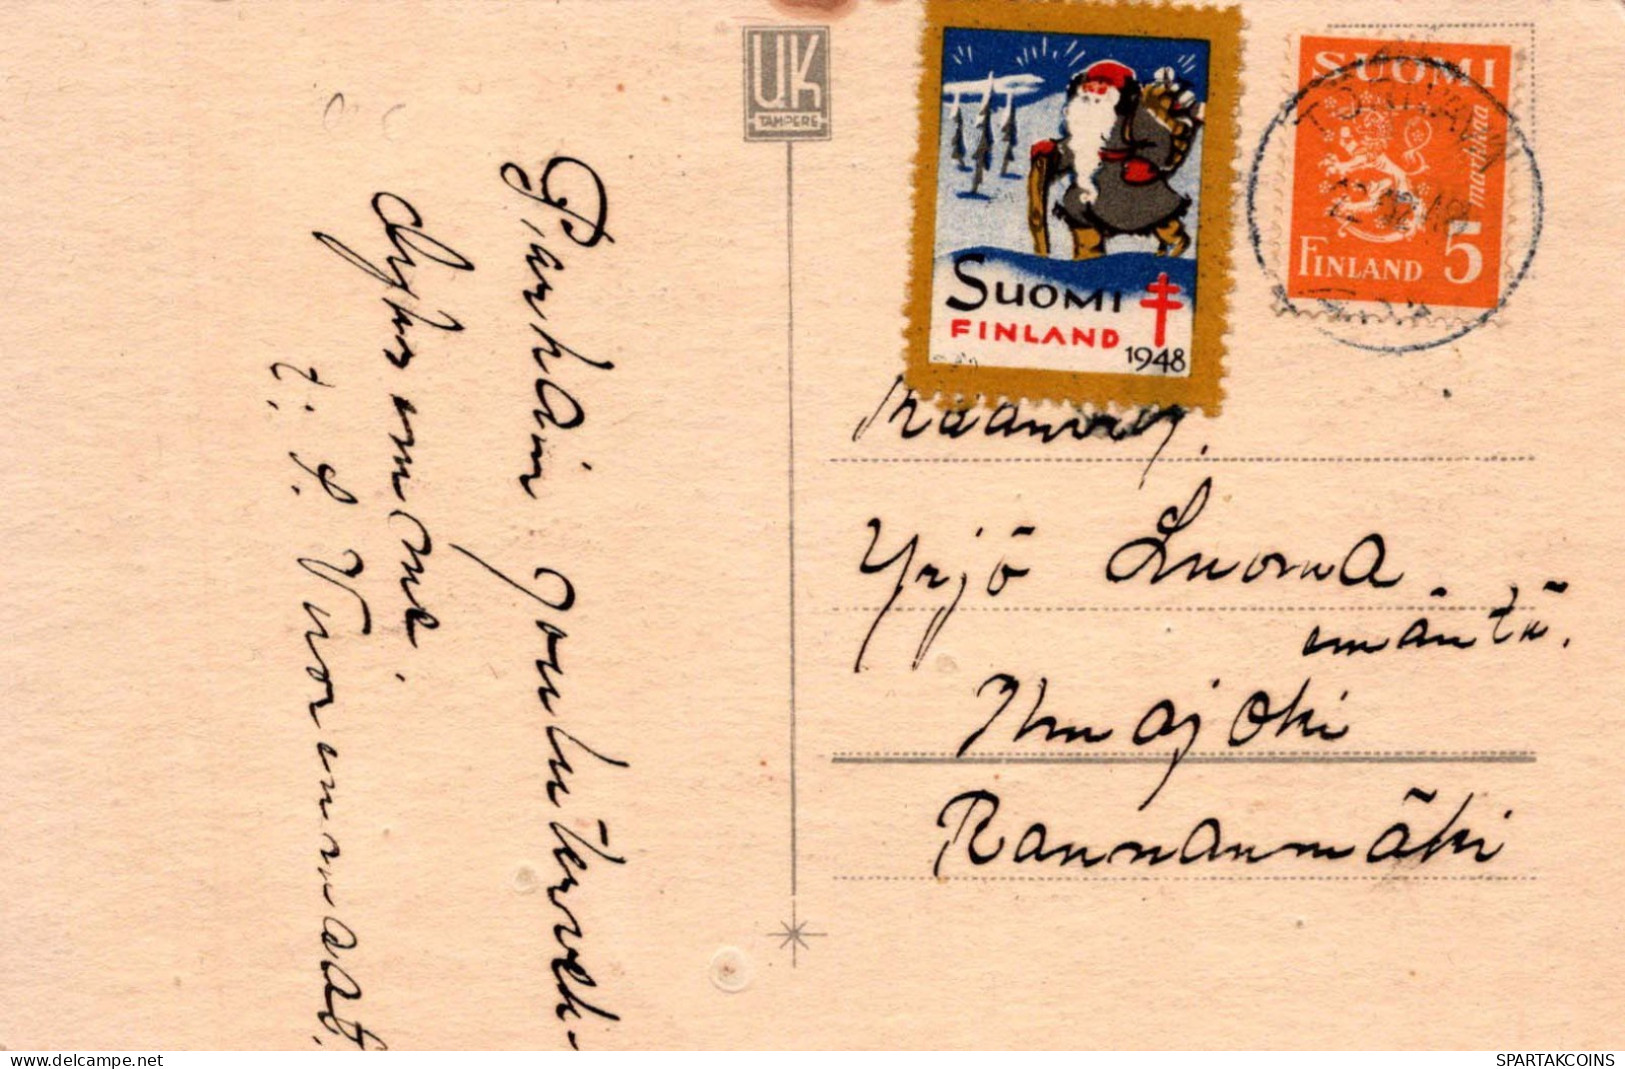 UK
TAMPERE
SUOMI
FINLAND
1948
SUOMI
markkaa
FINLAND 5
Parhain Jouluterveh-
t: S. Vuorenmaat.
Yrjö Luoma
emäntä.
Ilmajoki
Rannanmäki
delcampe.net
SPARTAKCOINS